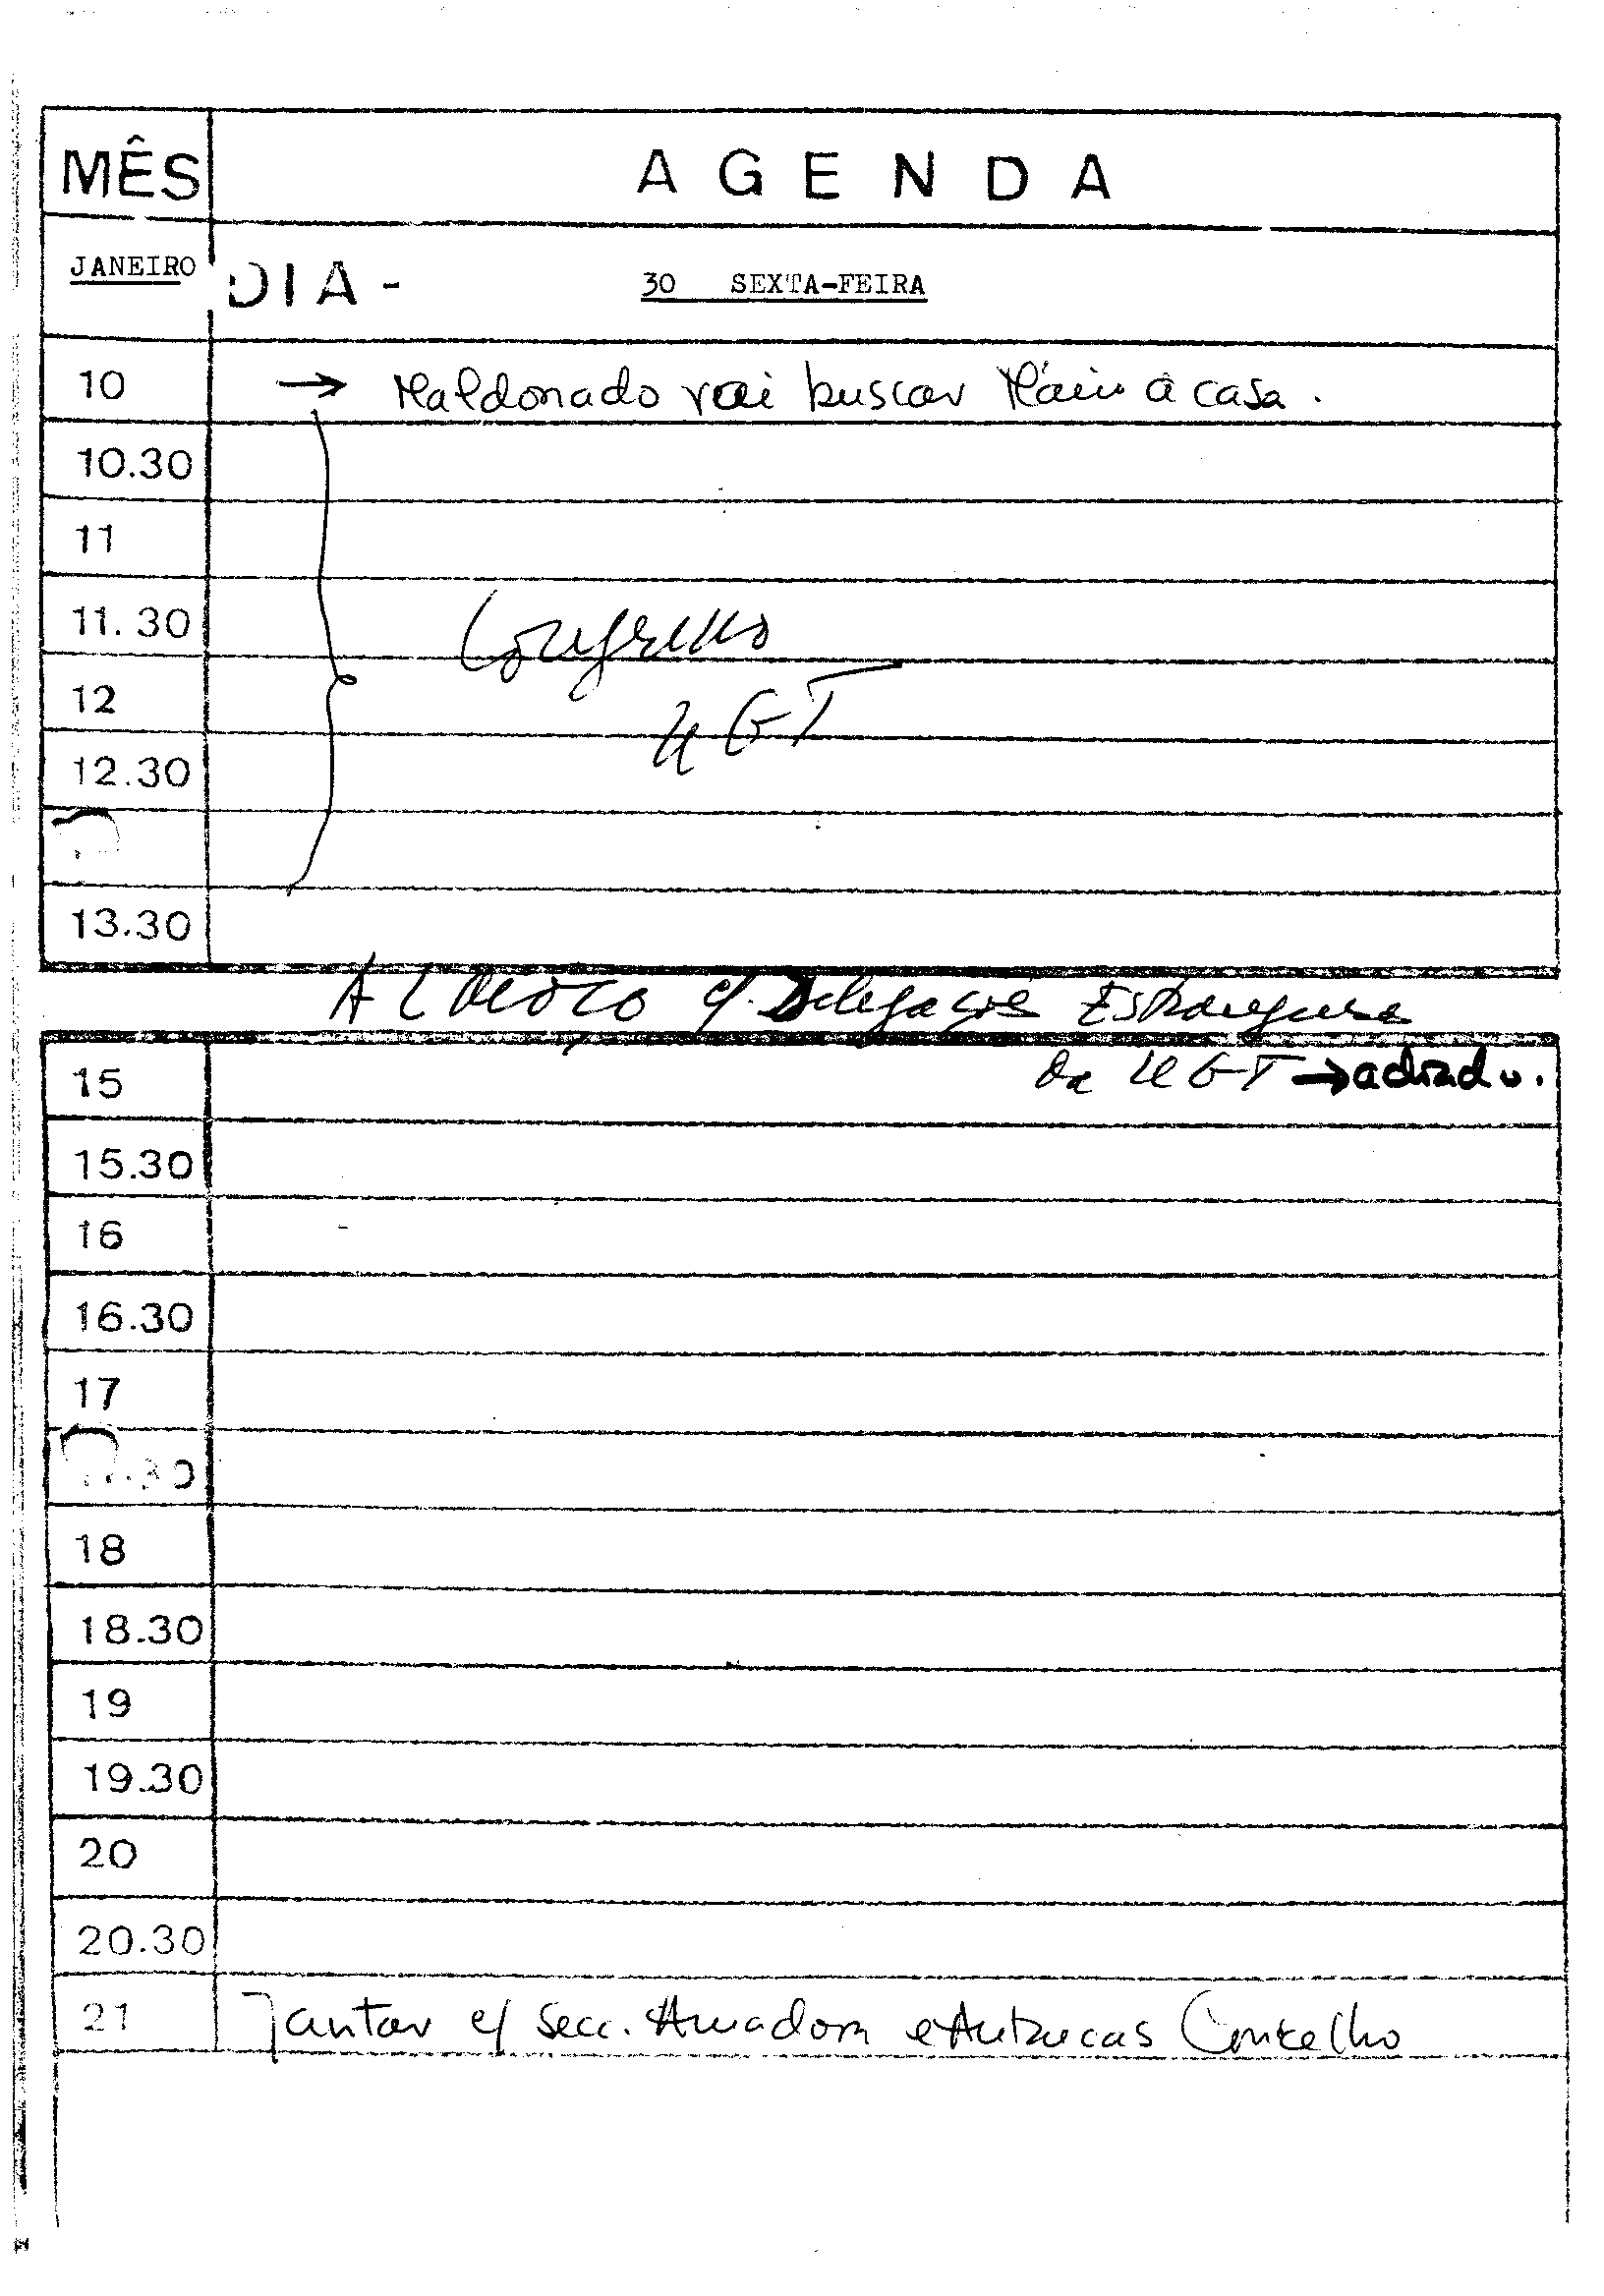 MÊS AGENDA
JANEIRO DIA - 30 SEXTA-FEIRA
10 → Maldonado vai buscar Mário a casa.
10.30
11
11.30 Congresso
12 UGT
12.30
13.30
Almoço c/. Delegação Estrangeira
15 da UGT → adiado.
15.30
16
16.30
17
.30
18
18.30
19
19.30
20
20.30
21 Jantar c/ Secc. Amadora e Autarcas Concelho